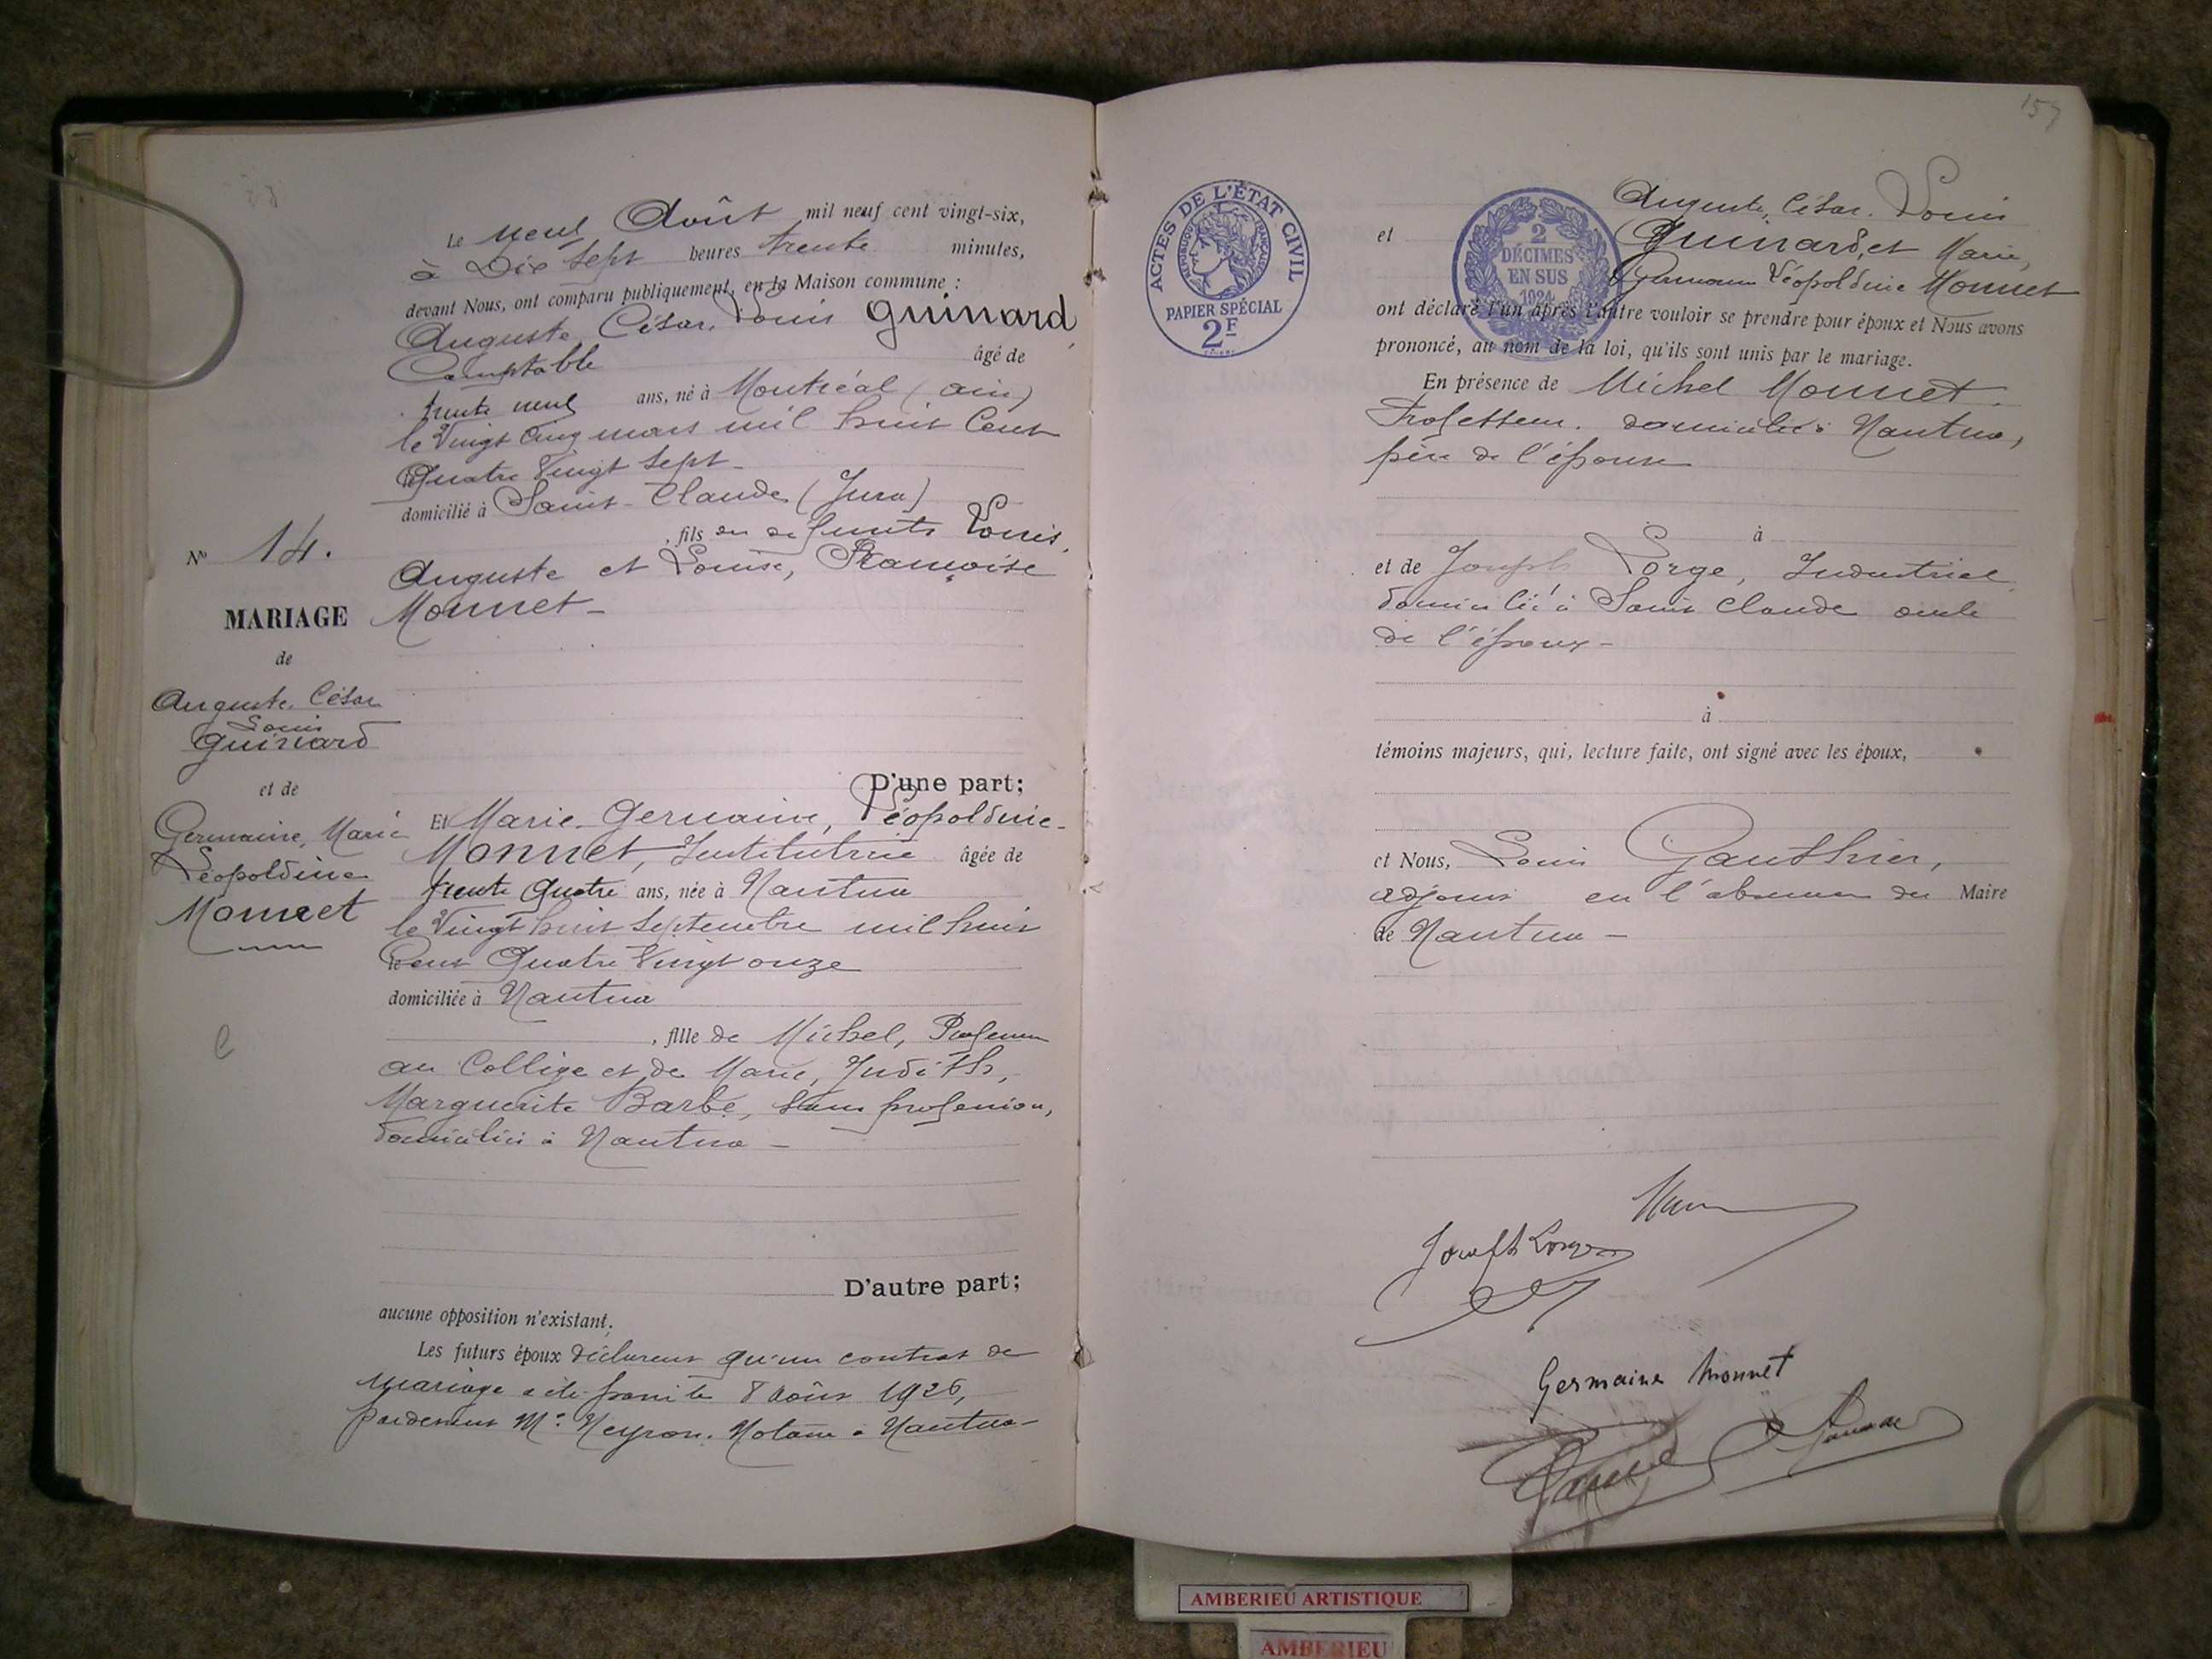 Le neuf Août mil neuf cent vingt-six,
à Dix sept heures trente minutes,
devant Nous, ont comparu publiquement, en la Maison commune :
Auguste, César, Louis Guinard,
Comptable âgé de
trente neuf ans, né à Montréal (ain)
le Vingt Cinq mars mil huit Cent
Quatre Vingt Sept -
domicilié à Saint-Claude (Jura)
, fils de defunts Louis,
Auguste et Louise, Françoise
Monnet -
N° 14.
MARIAGE
de
Auguste, César
Louis
Guinard
et de
Germaine, Marie
Léopoldine
Monnet
D'une part;
Et Marie-Germaine, Léopoldine-
Monnet, Institutrice âgée de
trente Quatre ans, née à Nantua
le Vingt huit Septembre mil huit
Cent Quatre Vingt onze
domiciliée à Nantua
, fille de Michel, Professeur
au Collège et de Marie, Judith,
Marguerite Barbe, sans profession,
domiciliés à Nantua -
D'autre part;
aucune opposition n'existant;
Les futurs époux déclarent qu'un contrat de
mariage a été passé le 8 Août 1926,
pardevant Me Neyron, Notaire à Nantua-
157
ACTES DE L'ÉTAT CIVIL
RÉPUBLIQUE FRANÇAISE
PAPIER SPÉCIAL
2F
2
DÉCIMES
EN SUS
1924
Auguste, César, Louis
et Guinard, et Marie,
Germaine Léopoldine Monnet
ont déclaré l'un après l'autre vouloir se prendre pour époux et Nous avons
prononcé, au nom de la loi, qu'ils sont unis par le mariage.
En présence de Michel Monnet,
Professeur, domicilié à Nantua,
père de l'épouse
à
et de Joseph Lorge, Industriel
domicilié à Saint Claude oncle
de l'époux -
à
témoins majeurs, qui, lecture faite, ont signé avec les époux,
et Nous, Louis Gauthier,
adjoint en l'absence du Maire
de Nantua -
Joseph Lorge
Germaine Monnet
AMBERIEU ARTISTIQUE
AMBERIEU